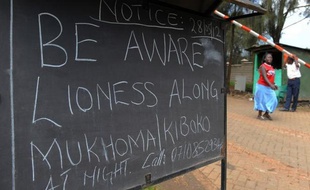 NOTICE: 28/11/12
BE AWARE
LIONESS ALONG
MUKHOMA/KIBOKO
AT NIGHT. Call: 0710852934